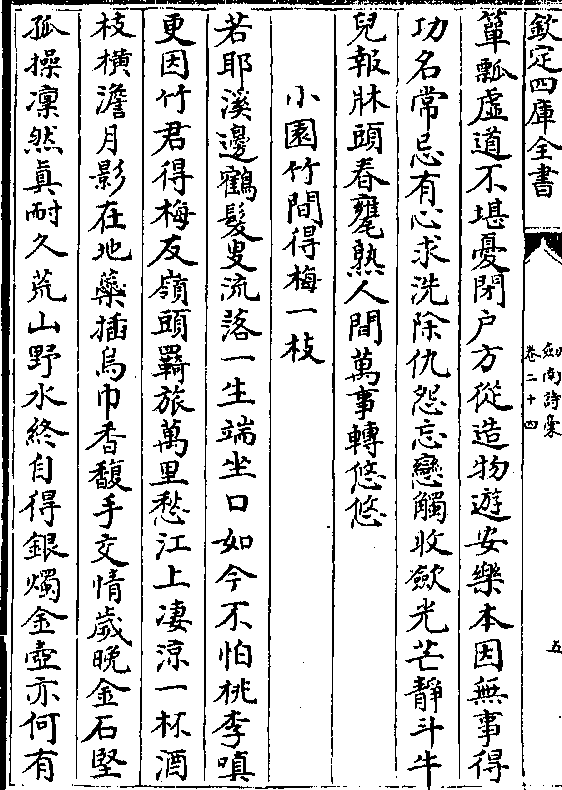 欽定四庫全書
劍南詩稾
卷二十四
五
簞瓢虛道不堪憂閉户方從造物遊安樂本因無事得
功名常忌有心求洗除仇怨忘蠻觸收歛光芒静斗牛
兒報牀頭春甕熟人間萬事轉悠悠
小園竹間得梅一枝
若耶溪邊鶴髮叟流落一生端坐口如今不怕桃李嗔
更因竹君得梅友嶺頭羇旅萬里愁江上凄涼一杯酒
枝橫澹月影在地蘂插烏巾香馥手交情歲晚金石堅
孤操凜然真耐久荒山野水終自得銀燭金壺亦何有